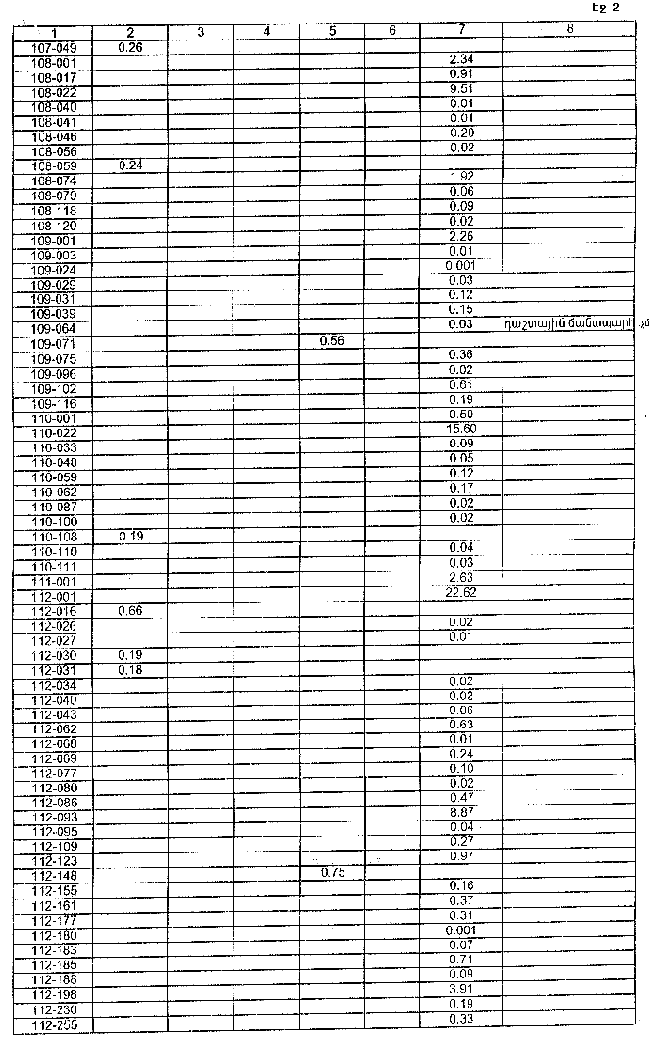 Էջ 2
1 2 3 4 5 6 7 8
107-049 0.26
108-001 2.34
108-017 0.91
108-022 9.51
108-040 0.01
108-041 0.01
108-046 0.20
108-056 0.02
108-059 0.24
108-074 1.92
108-079 0.06
108-118 0.09
108-120 0.02
109-001 2.26
109-003 0.01
109-024 0.001
109-029 0.03
109-031 0.12
109-039 0.15
109-064 0.03 դաշտային
109-071 0.56
109-075 0.36
109-096 0.02
109-102 0.61
109-116 0.19
110-001 0.50
110-022 15.60
110-033 0.09
110-048 0.05
110-059 0.12
110-062 0.17
110-087 0.02
110-100 0.02
110-108 0.19
110-110 0.04
110-111 0.03
111-001 2.63
112-001 22.62
112-016 0.66
112-026 0.02
112-027 0.01
112-030 0.19
112-031 0.18
112-034 0.02
112-040 0.02
112-043 0.06
112-062 0.63
112-068 0.01
112-069 0.24
112-077 0.10
112-080 0.02
112-086 0.47
112-093 8.87
112-095 0.04
112-109 0.27
112-123 0.97
112-148 0.75
112-155 0.16
112-161 0.37
112-177 0.31
112-180 0.001
112-183 0.07
112-185 0.71
112-188 0.09
112-198 3.91
112-230 0.19
112-255 0.33